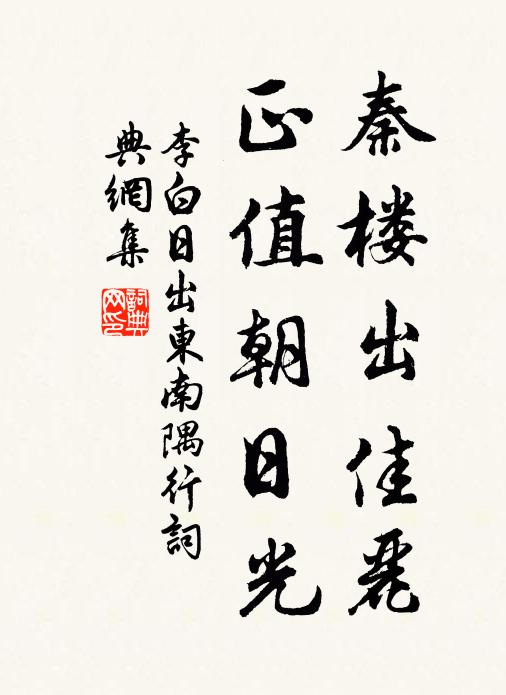 秦楼出佳麗
正值朝日光
李白日出東南隅行詞
典網集
詞典
网印